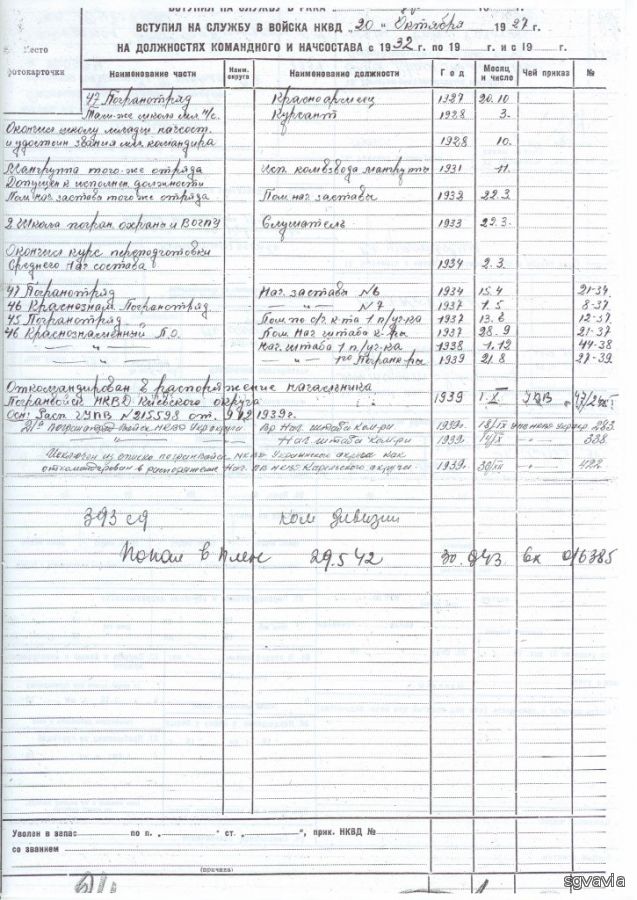 ВСТУПИЛ НА СЛУЖБУ В РККА
ВСТУПИЛ НА СЛУЖБУ В ВОЙСКА НКВД „20“ Октября 1927 г.
НА ДОЛЖНОСТЯХ КОМАНДНОГО И НАЧСОСТАВА с 1932 г. по 19 г. и с 19 г.
Место
фотокарточки
Наименование части Наим. округа Наименование должности Год Месяц и число Чей приказ №
47 Погранотряд Красноармеец 1927 20.10
Там-же школа мл. н/с. Курсант 1928 3.
Окончил школу младш начсост.
и удостоен звания мл. командира 1928 10.
Мангруппа того-же отряда Исп. комвзвода мангруппы 1931 11.
Допущен к исполнен. должности
Пом. нач. застав того-же отряда Пом. нач. заставы 1932 22.3.
2 Школа погран. охраны и ВОГПУ Слушатель 1933 22.3.
Окончил курс переподготовки
среднего нач. состава 1934 2.3.
47 Погранотряд Нач. заставы №6 1934 15.4 21-34.
46 Краснознам. Погранотряд — " — №7 1937 1.5 8-37.
45 Погранотряд Пом. по 1937 12-37.
46 Краснознаменный П.О. Пом. Нач. штаба 1937 28.9 21-37
— " — Нач. штаба 1 1938 1.12 44-38
— " — — " — 1939 21.8 27-39.
Откомандирован в распоряжение начальника
Погранвойск НКВД Киевского округа 1939 1.X
Осн: Расп. ГУПВ №215598 от 1939г.
Вр Нач. штаба 1939г. 18/IX 283.
— " — Нач. штаба 1939г. 338
Исключен из списка погранвойск НКВД Украинского округа как
откомандирован в распоряжение Нач. ПВ НКВД Карельского округа 1939г. 422
393 сд ком дивизии
Попал в плен 29.5 42 30. 943. Вк 0/6385
Уволен в запас по п. „ “ ст. „ “, прик. НКВД №
со званием
(причина)
sgvavia